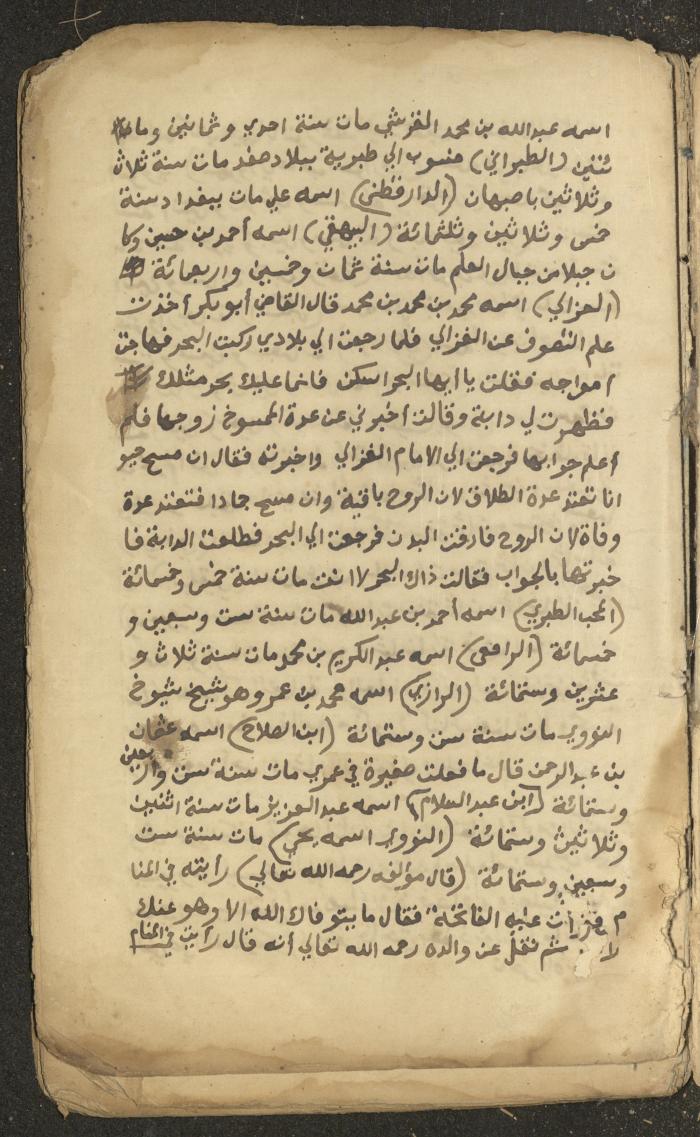 اسمه عبد الله بن محمد القرشي مات سنة احدي وثمانين وما
ئتين (الطبراني) منسوب الي طبرية ببلاد صفد مات سنة ثلاث
وثلاثين باصبهان (الدارقطني) اسمه علي مات ببغداد سنة
خمس وثلاثين وثلثمائة (البيهقي) اسمه أحمد بن حسين وكا
ن جبلا من جبال العلم مات سنة ثمان وخمسين واربعمائة
(الغزالي) اسمه محمد بن محمد بن محمد قال القاضي أبو بكر أخذت
علم التصوف عن الغزالي فلما رجعت الي بلادي ركبت البحر فهاجت
أمواجه فقلت يا أيها البحر اسكن فانما عليك بحر مثلك
فظهرت لي دابة وقالت أخبرني عن عدة الممسوخ زوجها فلم
أعلم جوابها فرجعت الي الامام الغزالي واخبرته فقال ان مسخ حيو
انا تعتد عدة الطلاق لان الروح باقية وان مسخ جمادا فتعتد عدة
وفاة لان الروح فارقت البدن فرجعت الي البحر فطلعت الدابة فا
خبرتها بالجواب فقالت ذاك البحر لا انت مات سنة خمس وخمسمائة
(المحب الطبري) اسمه أحمد بن عبد الله مات سنة ست وسبعين و
خمسمائة (الرافعي) اسمه عبد الكريم بن محمد مات سنة ثلاث و
عشرين وستمائة (الرازي) اسمه محمد بن عمر وهو شيخ شيوخ
النووي مات سنة ست وستمائة (ابن الصلاح) اسمه عثمان
بن عبد الرحمن قال ما فعلت صغيرة في عمري مات سنة ست واربعين
وستمائة (ابن عبد السلام) اسمه عبد العزيز مات سنة اثنين
وثلاثين وستمائة (النووي اسمه يحي) مات سنة ست
وسبعين وستمائة (قال مؤلفه رحمه الله تعالي) رأيته في المنا
م فقرأت عليه الفاتحة فقال ما يتوفاك الله الا وهو عنك
ثم نقل عن والده رحمه الله تعالي أنه قال رأيت في المنام